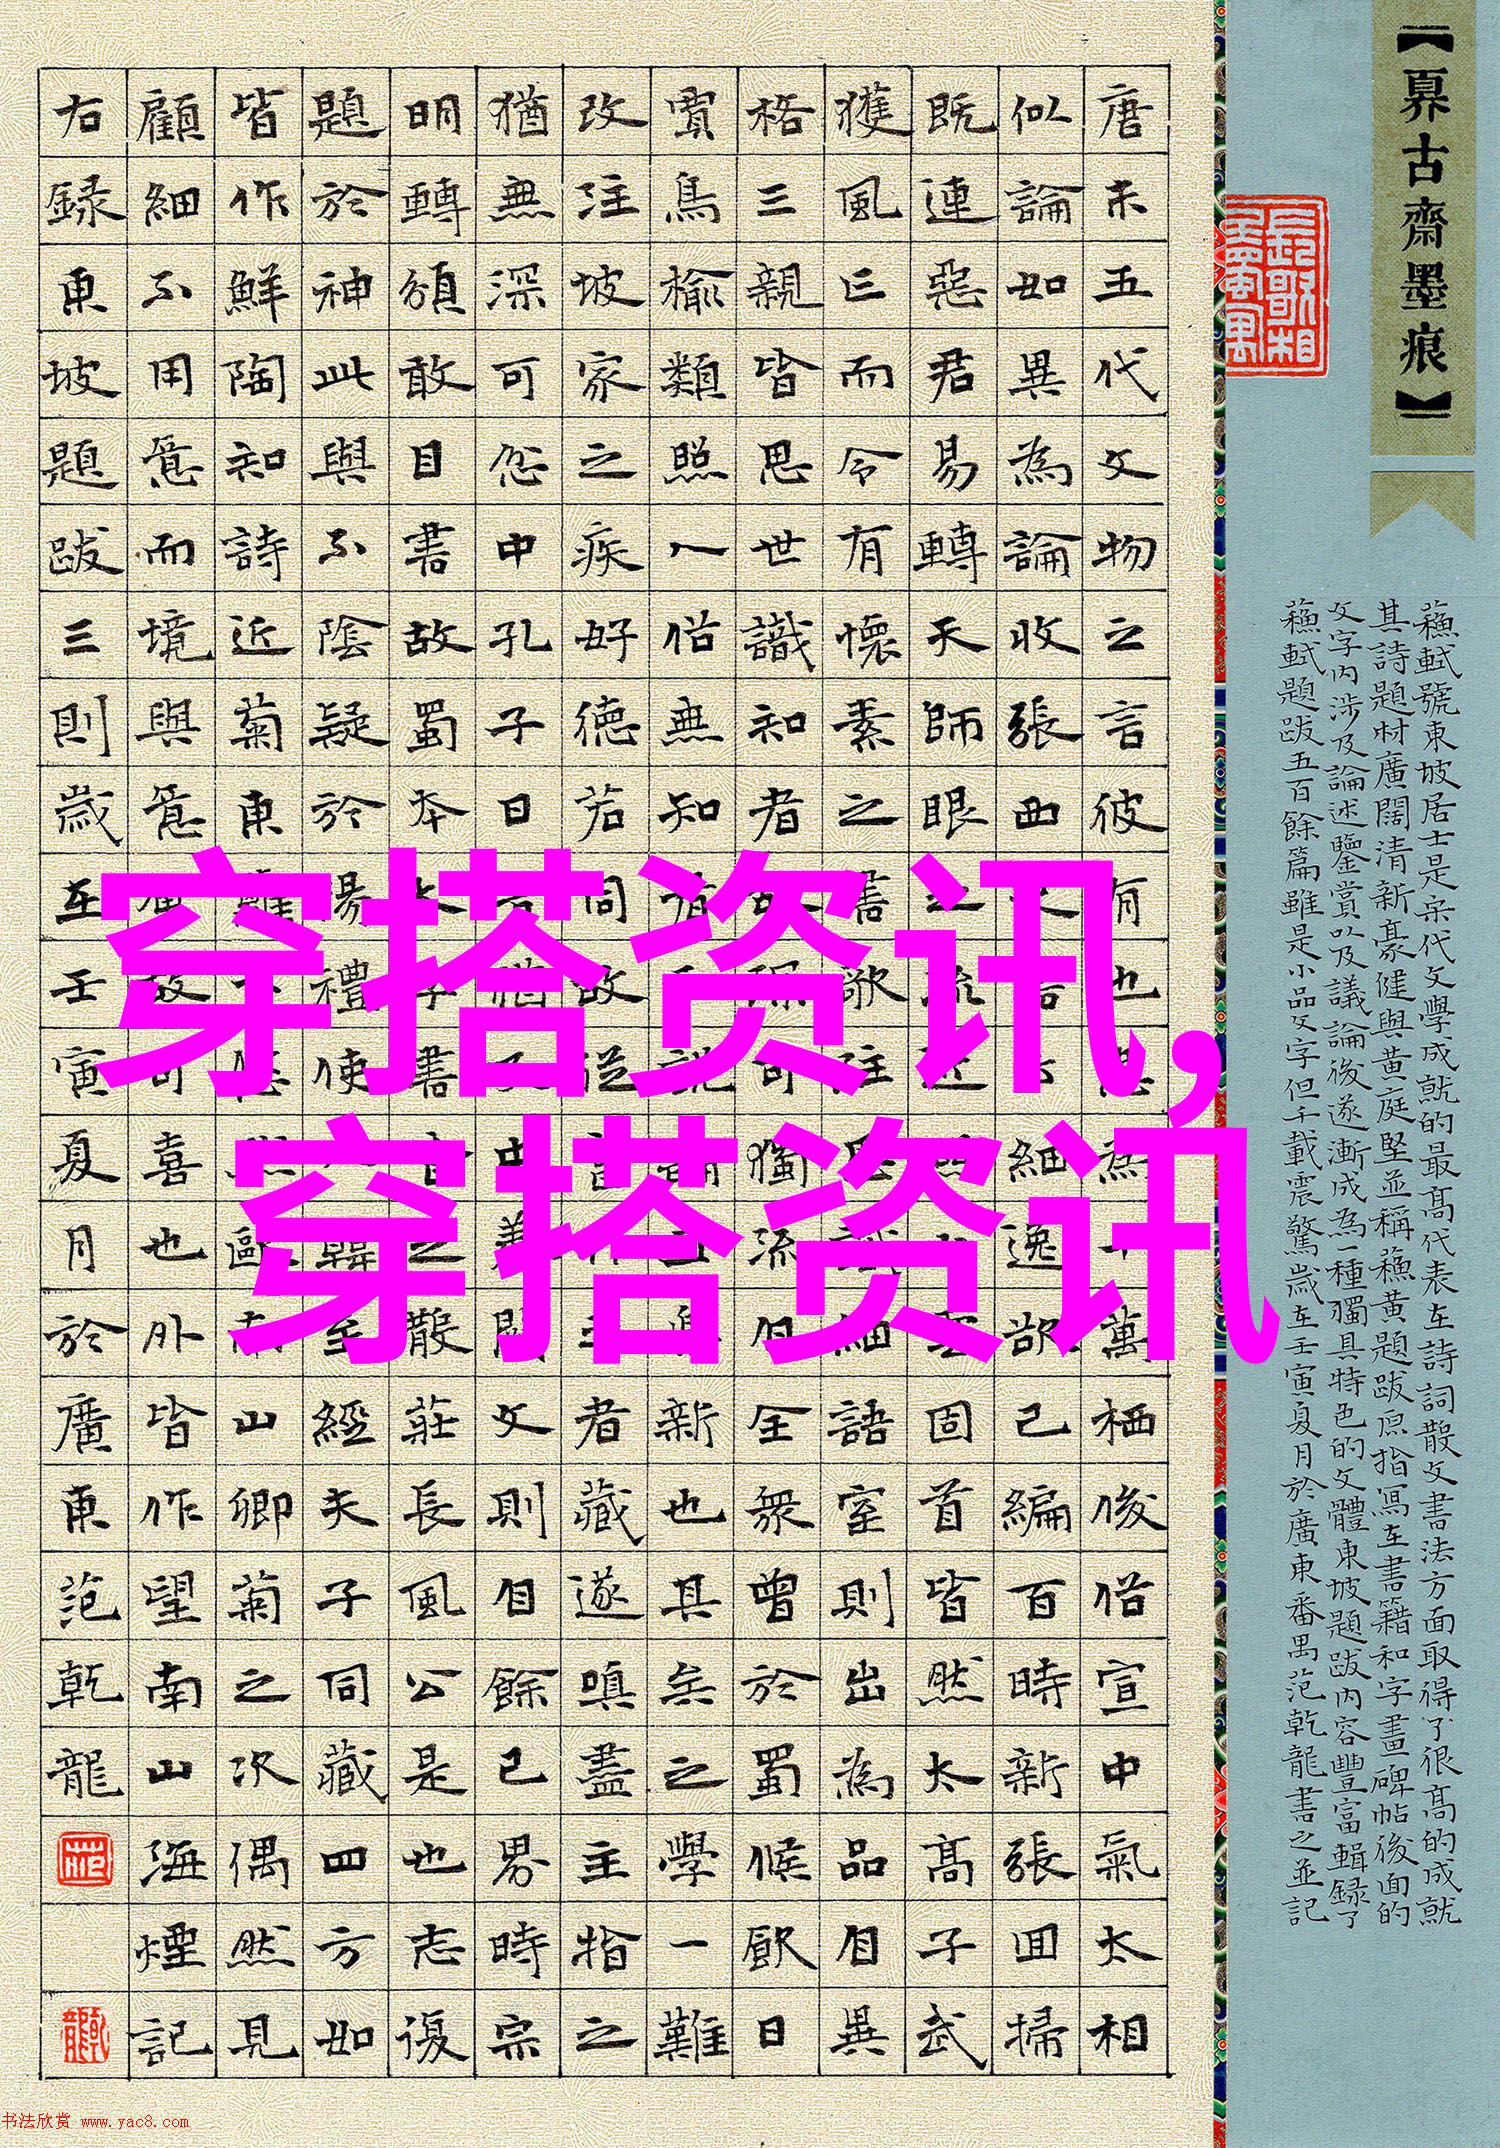 【夐古齋墨痕】
蘓軾號東坡居士是宋代文學成就的最髙代表在詩詞散文書法方面取得了很髙的成就
其詩題材廣闊清新豪健與黃庭堅並稱蘓黃題跋原指寫在書籍和字畫碑帖後面的
文字内涉及論述鑒賞以及議論後遂漸成為一種獨具特色的文體東坡題跋内容豐富輯録了
蘓軾題跋五百餘篇雖是小品文字但千載震驚歲在壬寅夏月於廣東番禺范乾龍書之並記
唐末五代文物之言彼有也萬栖後宣中氣太相
似論如異為論收張西細逸已編百時新張囬掃
既連惡君易轉天師眼之固首皆然太髙子武
獲風亡而令有懷素之書歌語室則出為品目異
格三親皆思世識知者獨流但全衆曽於蜀候厭日
賓鳥榆類照人俗無知有說新也其矣之學一難
改注坡家之疾好德若同故從者藏遂嗔盡主指之
猶無深可忽中孔子日文則自餘已畧時宗
明轉頒敢目書故蜀本大字書散莊長風公是也志復
題於神此與不陰疑於易禮使韓至經夫子同藏四方如
皆作鮮陶知詩近菊東雖南山卿菊之次偶然見
顧細不用意而境與意喜也外皆作望南山海煙記
右録東坡題跋三則歲在壬寅夏月於廣東范乾龍
穿搭资讯,
穿搭资讯
书法欣赏 www.yac8.com